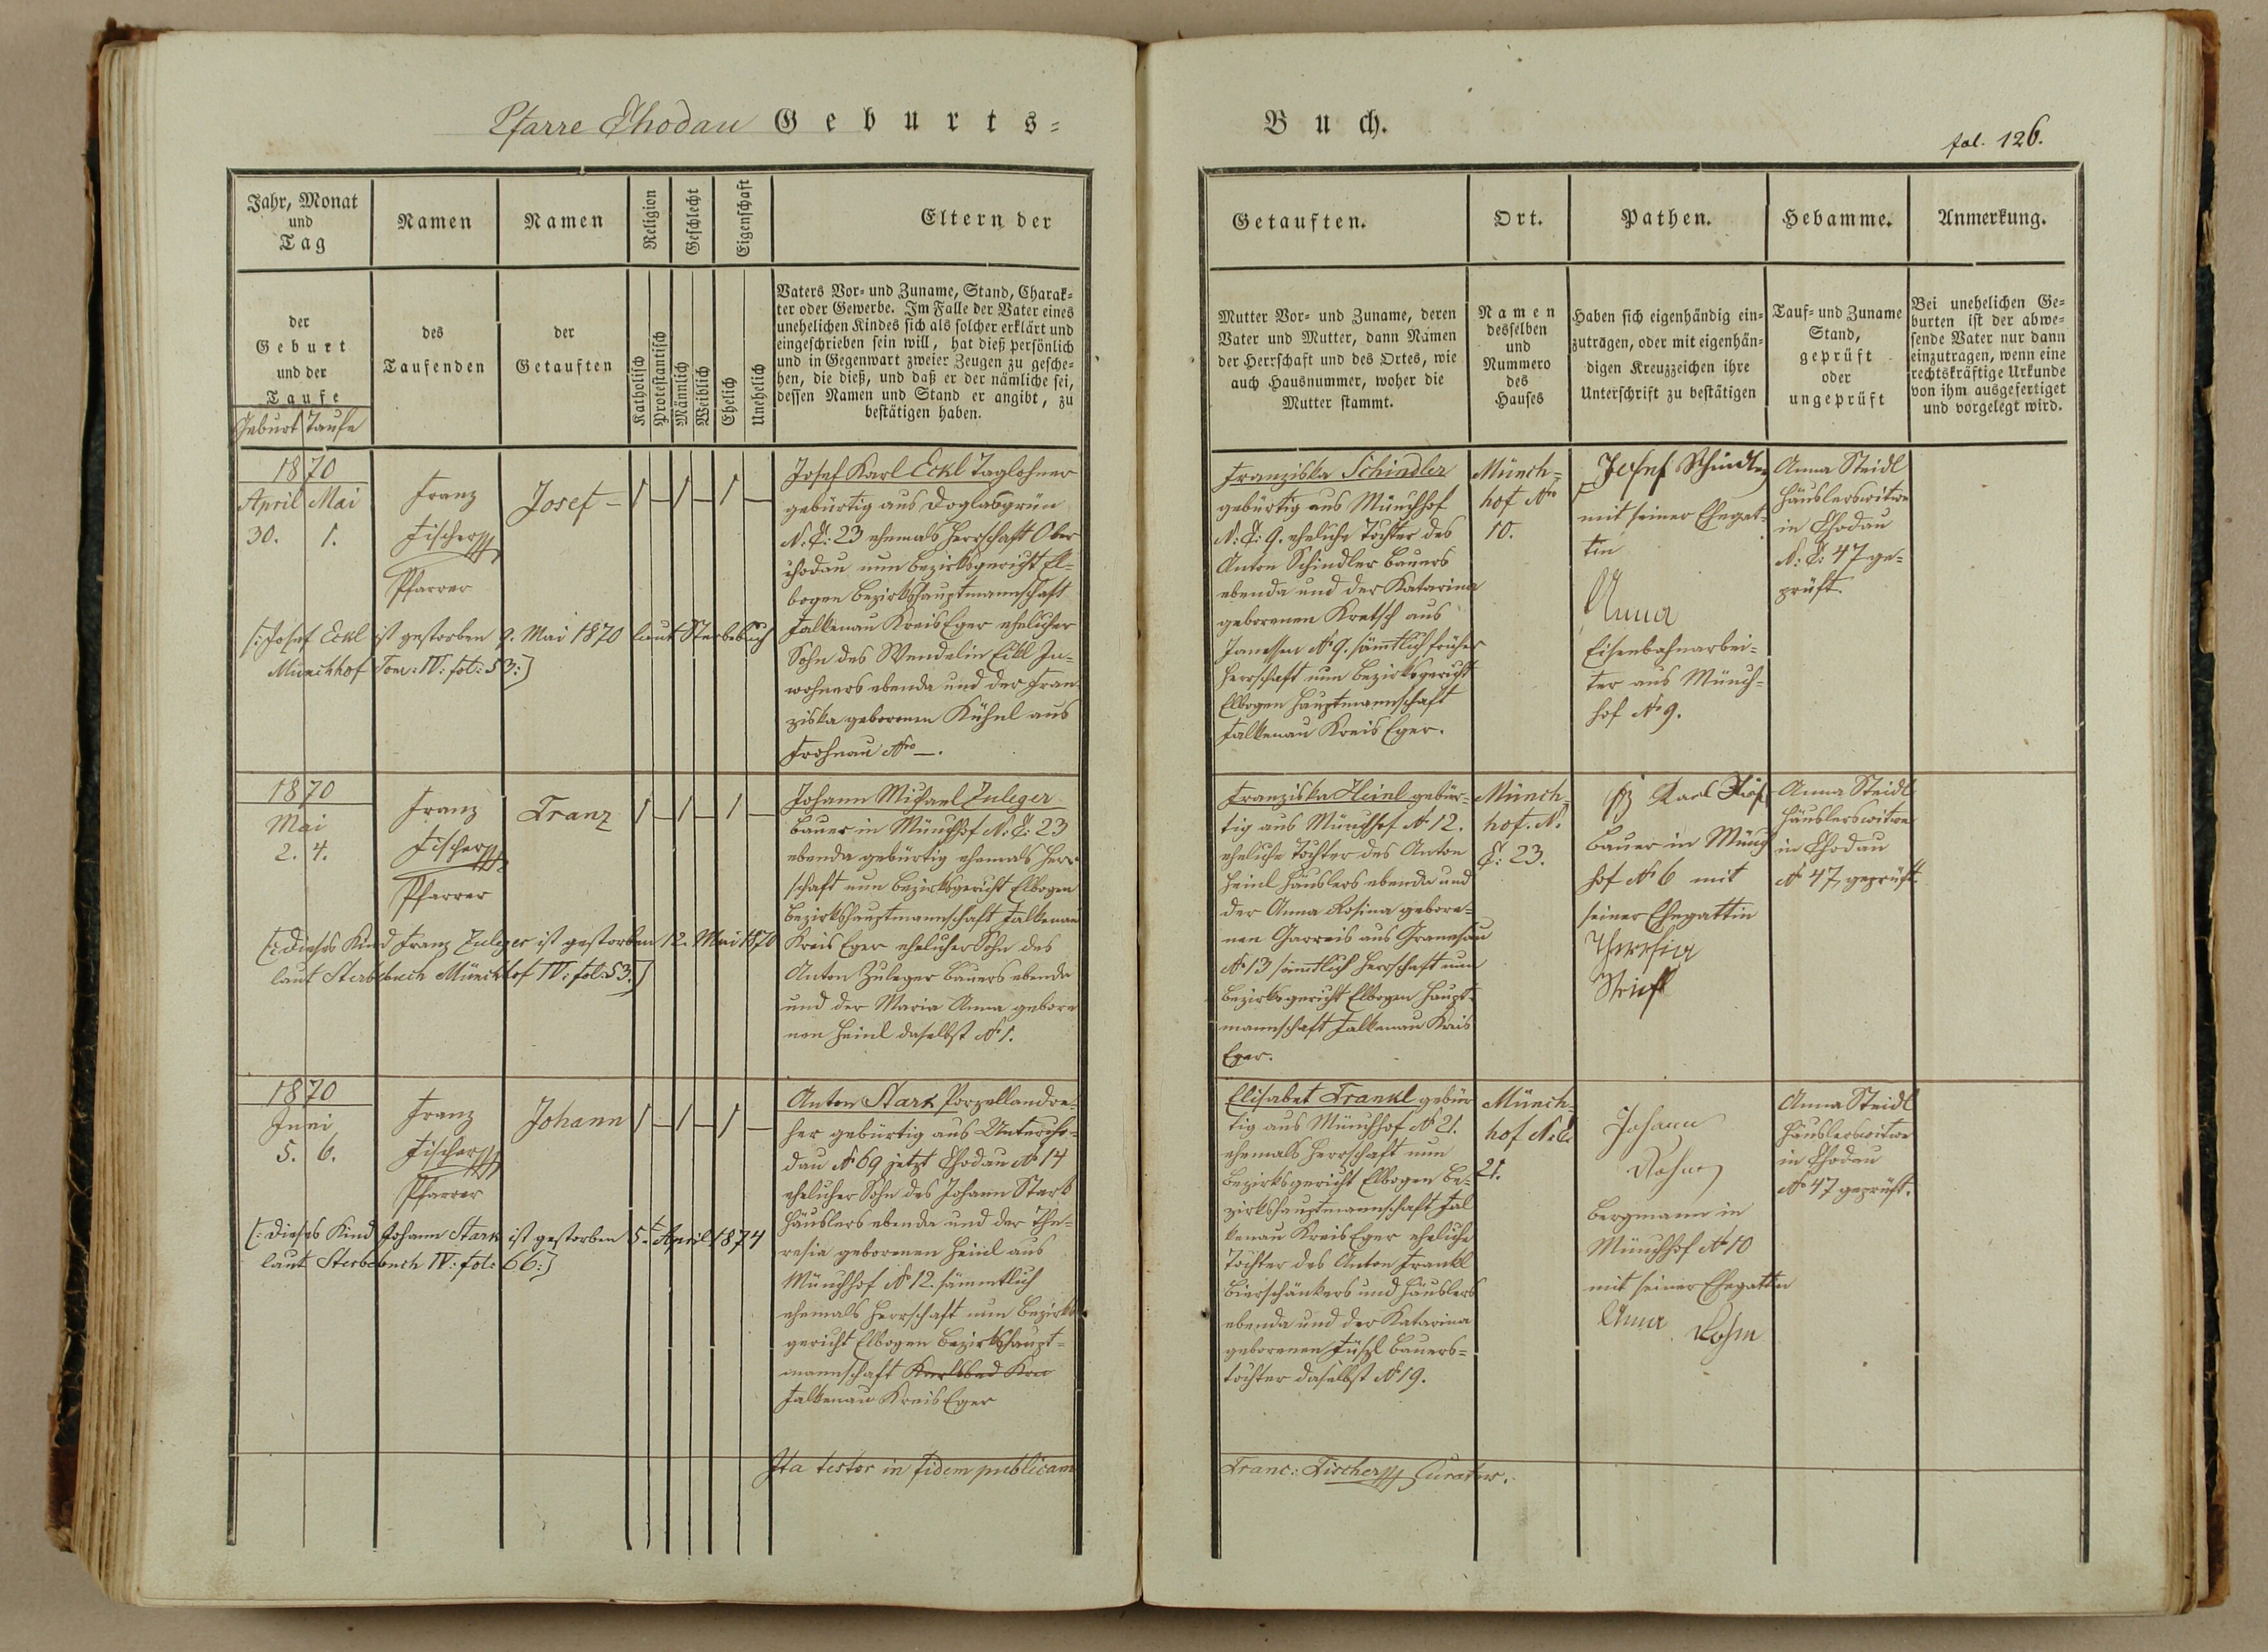 Pfarre Chodau Geburts-
Buch.
fol. 126.
Jahr, Monat
und
Tag
Namen
Namen
Religion
Geschlecht
Eigenschaft
Eltern der
der
Geburt
und der
Taufe
Geburt Taufe
des
Taufenden
der
Getauften
Katholisch
Protestantisch
Männlich
Weiblich
Ehelich
Unehelich
Vaters Vor- und Zuname, Stand, Charak-
ter oder Gewerbe. Im Falle der Vater eines
unehelichen Kindes sich als solcher erklärt und
eingeschrieben sein will, hat dieß persönlich
und in Gegenwart zweier Zeugen zu gesche-
hen, die dieß, und daß er der nämliche sei,
dessen Namen und Stand er angibt, zu
bestätigen haben.
Getauften.
Ort.
Pathen.
Hebamme.
Anmerkung.
Mutter Vor- und Zuname, deren
Vater und Mutter, dann Namen
der Herrschaft und des Ortes, wie
auch Hausnummer, woher die
Mutter stammt.
Namen
desselben
und
Nummero
des
Hauses
Haben sich eigenhändig ein-
zutragen, oder mit eigenhän-
digen Kreuzzeichen ihre
Unterschrift zu bestätigen
Tauf- und Zuname
Stand,
geprüft
oder
ungeprüft
Bei unehelichen Ge-
burten ist der abwe-
sende Vater nur dann
einzutragen, wenn eine
rechtskräftige Urkunde
von ihm ausgefertiget
und vorgelegt wird.
1870
April Mai
30. 1.
Franz
Fischer
Pfarrer
Josef -
1 - 1 - 1 -
[: Josef Eckl ist gestorben 9. Mai 1870 laut Sterbebuch
Münchhof Tom: IV: fol: 53:]
Josef Karl Eckl Taglohner
gebürtig aus Doglasgrün
N: C: 23 ehemals Herrschaft Ober
chodau nun Bezirksgericht El-
bogen Bezirkshauptmannschaft
Falkenau Kreis Eger ehelicher
Sohn des Wendelin Eckl In-
wohners ebenda und der Fran-
ziska geborenen Kühnl aus
Frohnau Nro —.
Franziska Schindler
gebürtig aus Münchhof
N: C: 9. eheliche Tochter des
Anton Schindler Bauers
ebenda und der Katarina
geborenen Kretsch aus
Janessen No 9. sämtlich früher
Herrschaft nun Bezirksgericht
Elbogen Hauptmannschaft
Falkenau Kreis Eger.
Münch-
hof Nro
10.
Josef Schindler
mit seiner Ehegat-
tin
Anna
Eisenbahnarbei-
ter aus Münch-
hof No 9.
Anna Steidl
Häuslerswitwe
in Chodau
N: C: 47 ge-
prüft.
1870
Mai
2. 4.
Franz
Fischer
Pfarrer
Franz
1 - 1 - 1 -
[: Dieses Kind Franz Zuleger ist gestorben 12. Mai 1870
laut Sterbebuch Münchhof IV: fol: 53:]
Johann Michael Zuleger
Bauer in Münchhof N: C: 23
ebenda gebürtig ehemals Herr-
schaft nun Bezirksgericht Elbogen
Bezirkshauptmannschaft Falkenau
Kreis Eger ehelicher Sohn des
Anton Zuleger Bauers ebenda
und der Maria Anna gebore
nen Heinl daselbst No 1.
Franziska Heinl gebür-
tig aus Münchhof No 12.
eheliche Tochter des Anton
Heinl Häuslers ebenda und
der Anna Rosina gebore-
nen Garreis aus Granesau
No 13 sämtlich Herrschaft nun
Bezirksgericht Elbogen Haupt-
mannschaft Falkenau Kreis
Eger.
Münch-
hof. N.
C: 23.
Karl
Bauer in Münch
hof No 6 mit
seiner Ehegattin
Theresia
Anna Steidl
Häuslerswitwe
in Chodau
No 47, geprüft.
1870
Juni
5. 6.
Franz
Fischer
Pfarrer
Johann
1 - 1 - 1 -
[: Dieses Kind Johann Stark ist gestorben 5. April 1874
laut Sterbebuch IV: fol: 66:]
Anton Stark Porzellandre-
her gebürtig aus Untercho-
dau No 69 jetzt Chodau No 14
ehelicher Sohn des Johann Stark
Häuslers ebenda und der The-
resia geborenen Heinl aus
Münchhof No 12. sämmtlich
ehemals Herrschaft nun Bezirks
gericht Elbogen Bezirkshaupt-
mannschaft Karlsbad
Falkenau Kreis Eger
Elisabet Frankl gebür
tig aus Münchhof No 21.
ehemals Herrschaft nun
Bezirksgericht Elbogen Be-
zirkshauptmannschaft Fal
kenau Kreis Eger eheliche
Tochter des Anton Frankl
Bierschänkers und Häuslers
ebenda und der Katarina
geborenen Füssl Bauers-
tochter daselbst No 19.
Münch-
hof N: C:
21.
Johann
Rohm
Bergmann in
Münchhof No 10
mit seiner Ehegattin
Anna Rohm
Anna Steidl
Häuslerswitwe
in Chodau
No 47 geprüft.
Ita testor in fidem publicam
Franc: Fischer Curatus.